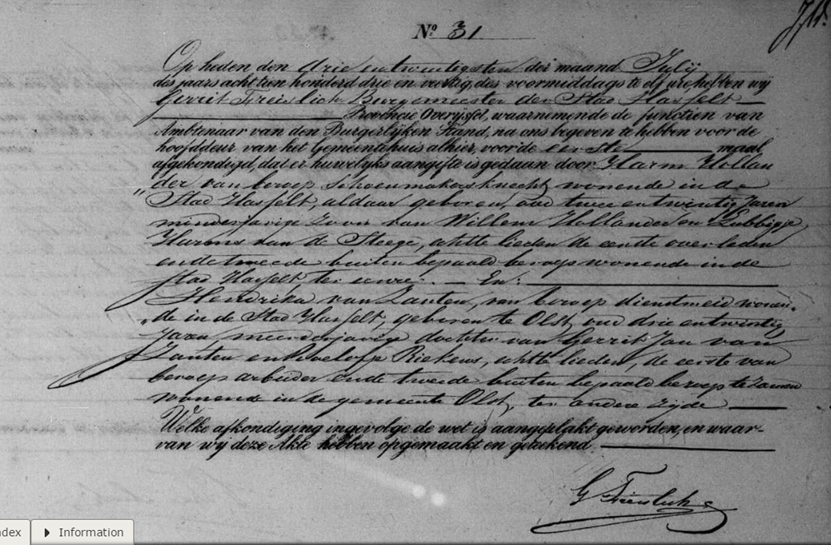 No. 31
Op heden den drie en twintigsten der maand Julij
des jaars achttien honderd drie en veertig, des voormiddags te elf ure, hebben wij
Gerrit Freislich Burgemeester der Stad Hasselt
Provincie Overijssel, waarnemende de functien van
Ambtenaar van den Burgerlijken Stand, na ons begeven te hebben voor de
hoofddeur van het Gemeentehuis alhier, voor de eerste maal
afgekondigd, dat er huwelijks aangifte is gedaan door Harm Hollan
der van beroep Schoenmakersknecht, wonende in de
Stad Hasselt, aldaar geboren, oud twee en twintig Jaren
minderjarige Zoon van Willem Hollander en Lubbigje
Harms van de Steege, echte lieden de eerste overleden
en de tweede buiten bepaald beroep wonende in de
Stad Hasselt ter eenre. En:
Hendrika van Zanten, van beroep dienstmeid wonen-
de in de Stad Hasselt, geboren te Olst, oud drie en twintig
Jaren, meerderjarige dochter van Gerrit Jan van
Zanten en Roelofje Riekens, echte lieden, de eerste van
beroep arbeider en de tweede buiten bepaald beroep te zamen
wonende in de gemeente Olst, ter andere Zijde
Welke afkondiging ingevolge de wet is aangeplakt geworden, en waar-
van wij deze Akte hebben opgemaakt en geteekend.
G Freislich
ndex
Information